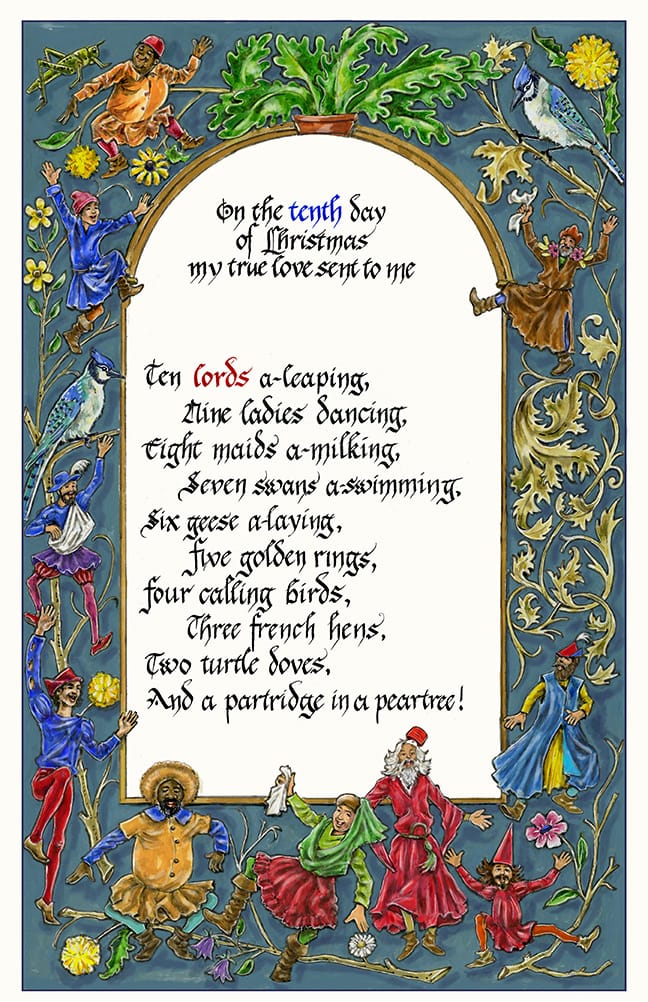 On the tenth day
of Christmas
my true love sent to me
Ten lords a-leaping,
Nine ladies dancing,
Eight maids a-milking,
Seven swans a-swimming,
Six geese a-laying,
five golden rings,
four calling birds,
Three french hens,
Two turtle doves,
And a partridge in a peartree!